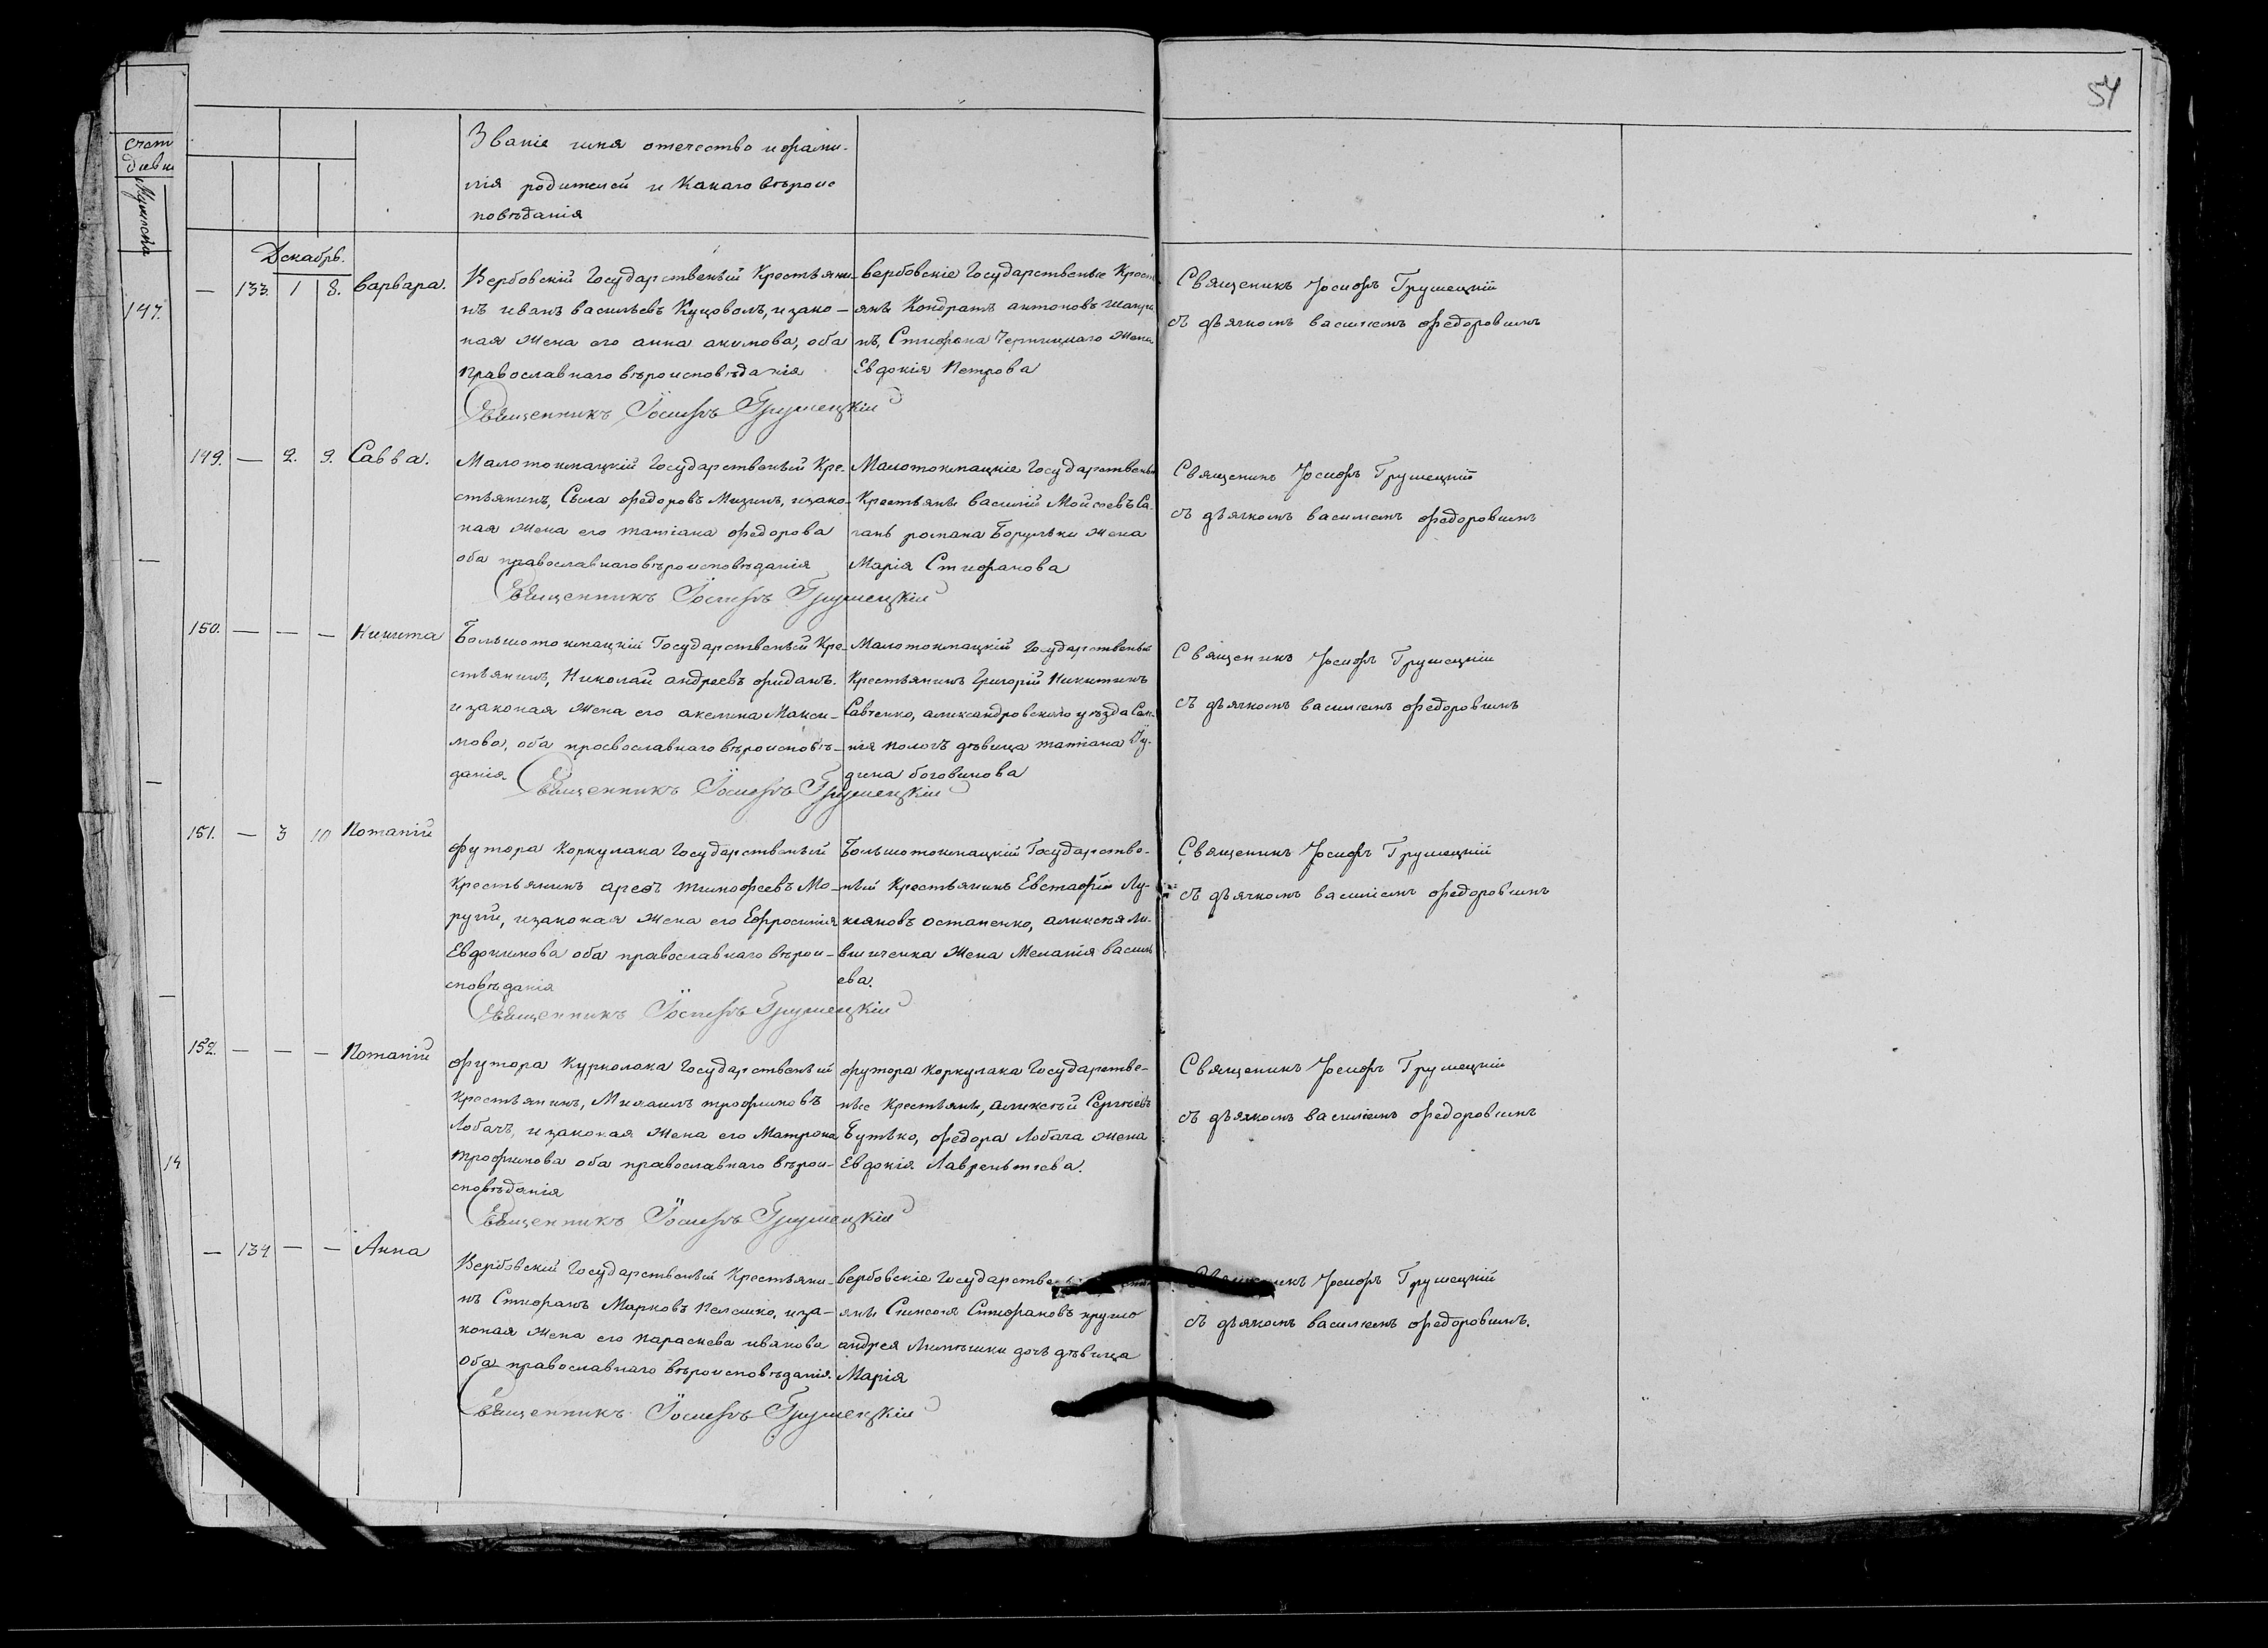 54
счет
дивы
Мужска
Званіе имя отечество и фами-
лія родителей и Какаго вѣроис
повѣданія
Декабрь.
147.
— 133. 1 8. Варвара.
Вербовскій Государственый Крестьяни-
нъ иванъ васильевъ Куцоволъ, и зако-
ная Жена его анна акимова, оба
Православнаго вѣроисповѣданія
Священникъ Іосифъ Грушецкій
вербовскіе Государственые Крест
янѣ Кондратъ антоновъ
нъ, Стифана Жена
Евдокія Петрова
Священикъ Іосифъ Грушецкій
съ дѣячкомъ василіемъ федоровымъ
149. — 2. 9. Савва.
Малотокмацкій Государственый Кре-
стьянинъ, Сыла федоровъ Мизинъ, и зако-
ная Жена его татіана федорова
оба православнаго вѣроисповѣданія
Священникъ Іосифъ Грушецкій
Малотокмацкіе Государственые
Крестьянѣ василій Мойсѣевъ Са-
гань романа Жена
Марія Стифанова
Священикъ Іосифъ Грушецкій
съ дѣячкомъ василіемъ федоровымъ
150. — — — Никита
Большотокмацкій Государственый Кре-
стьянинъ, Николай андреевъ фиданъ.
и законая Жена его акелина Макси-
мова, оба провославнаго вѣроисповѣ-
данія
Священникъ Іосифъ Грушецкій
Малотокмацкій Государственый
Крестьянинъ Григорій Никитинъ
Савченко, александровского уѣзда Сел.
нія пологъ дѣвица татіана
дина боговинова
Священикъ Іосифъ Грушецкій
съ дѣячкомъ василіемъ федоровымъ
151. — 3 10 Потапій
футора Коркулака Государственый
Крестьянинъ арефъ тимофеевъ Мо-
ругій, и законая Жена его Ефросинія
Евдокимова оба православнаго вѣрои-
сповѣданія
Священникъ Іосифъ Грушецкій
Большотокмацкій Государстве-
ный Крестьянинъ Евстафій Лу-
кяновъ остапенко, аликсѣя Ли-
вшиченка Жена Меланія василь
ева.
Священикъ Іосифъ Грушецкій
съ дѣячкомъ василіемъ федоровымъ
152. — — — Потапій
футора Курколака Государственый
Крестьянинъ, Михаилъ трофимовъ
Лобачъ, и законая Жена его Матрона
трофимова оба православнаго вѣрои-
сповѣданія
Священникъ Іосифъ Грушецкій
футора Коркулака Государстве-
ные Крестьянѣ, аликсѣй Сергѣевъ
Бутько, федора Лобача Жена
Евдокія Лаврентиева.
Священикъ Іосифъ Грушецкій
съ дѣячкомъ василіемъ федоровымъ
14
— 134 — — Анна
Вербовскій Государственый Крестьяни-
нъ Стифанъ Марковъ Келешко, и за-
коная Жена его параскева иванова
оба православнаго вѣроисповѣданія.
Священникъ Іосифъ Грушецкій
вербовскіе Государстве
янѣ Стифановъ кругло
андрея дочь дѣвица
Марія
Священикъ Іосифъ Грушецкій
съ дѣякомъ василіемъ федоровымъ.